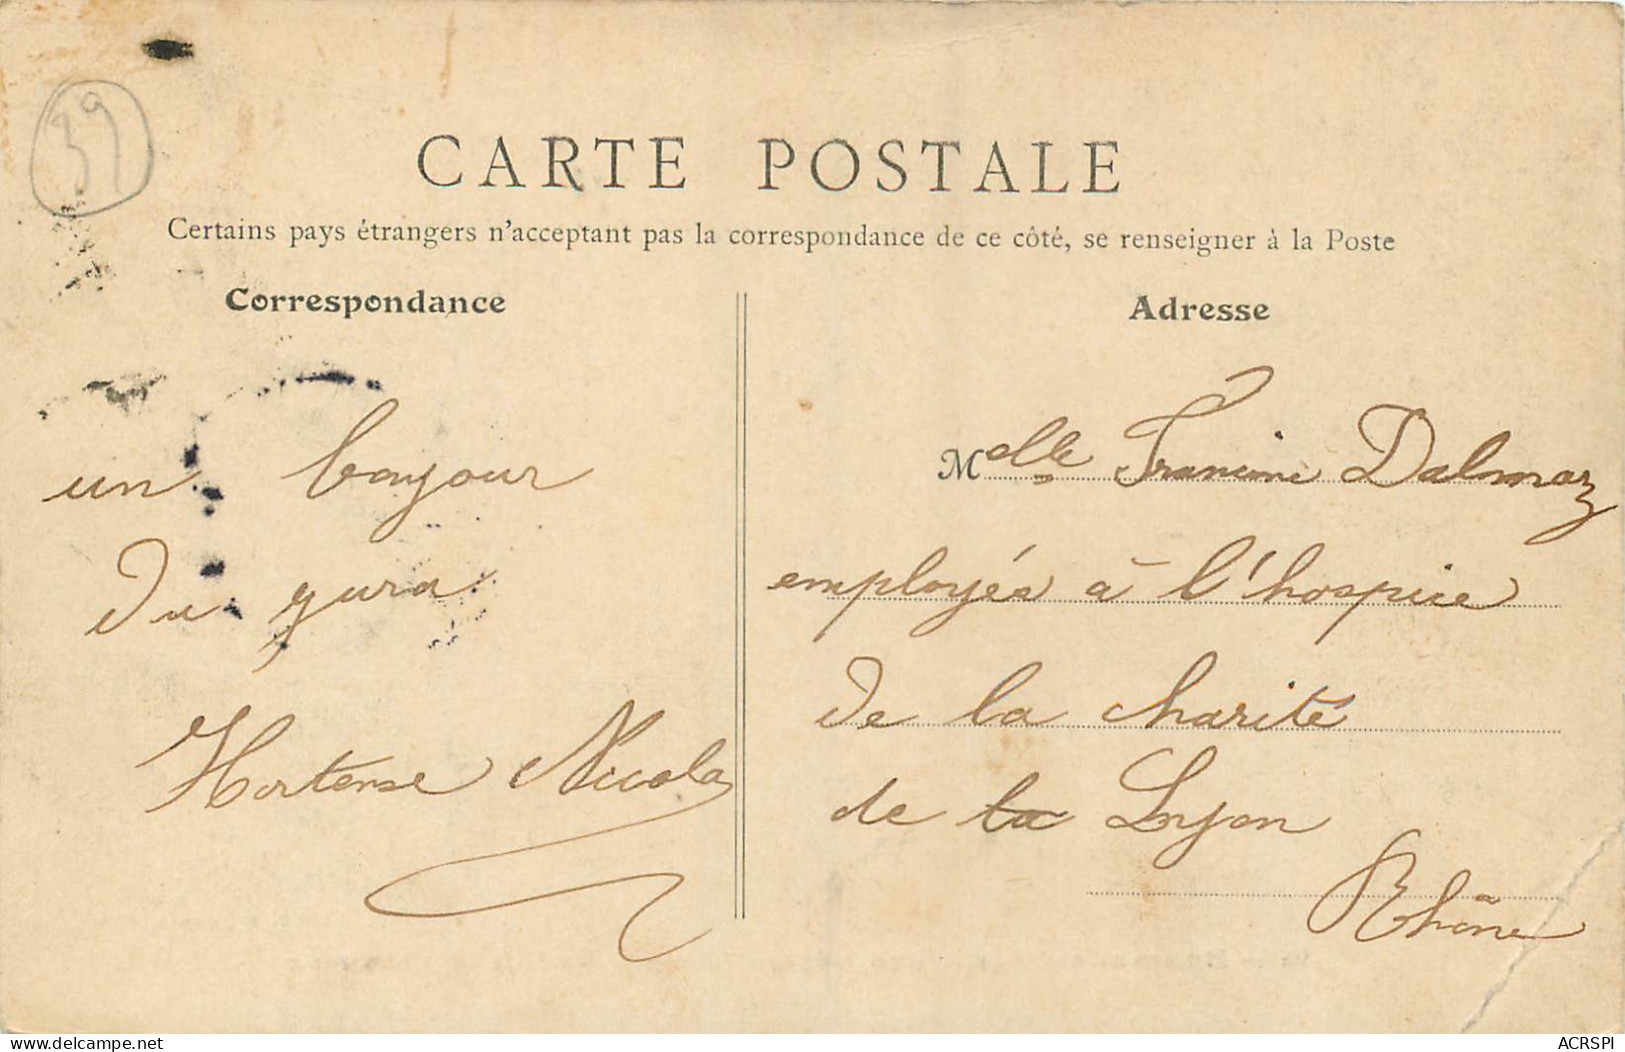 39
CARTE POSTALE
Certains pays étrangers n'acceptant pas la correspondance de ce côté, se renseigner à la Poste
Correspondance
un bonjour
du gura
Hortense Nicolas
Adresse
Melle Francine Dalmaz
employés à l'hospice
de la charité
de la Lyon
Rhône
delcampe.net
ACRSPI